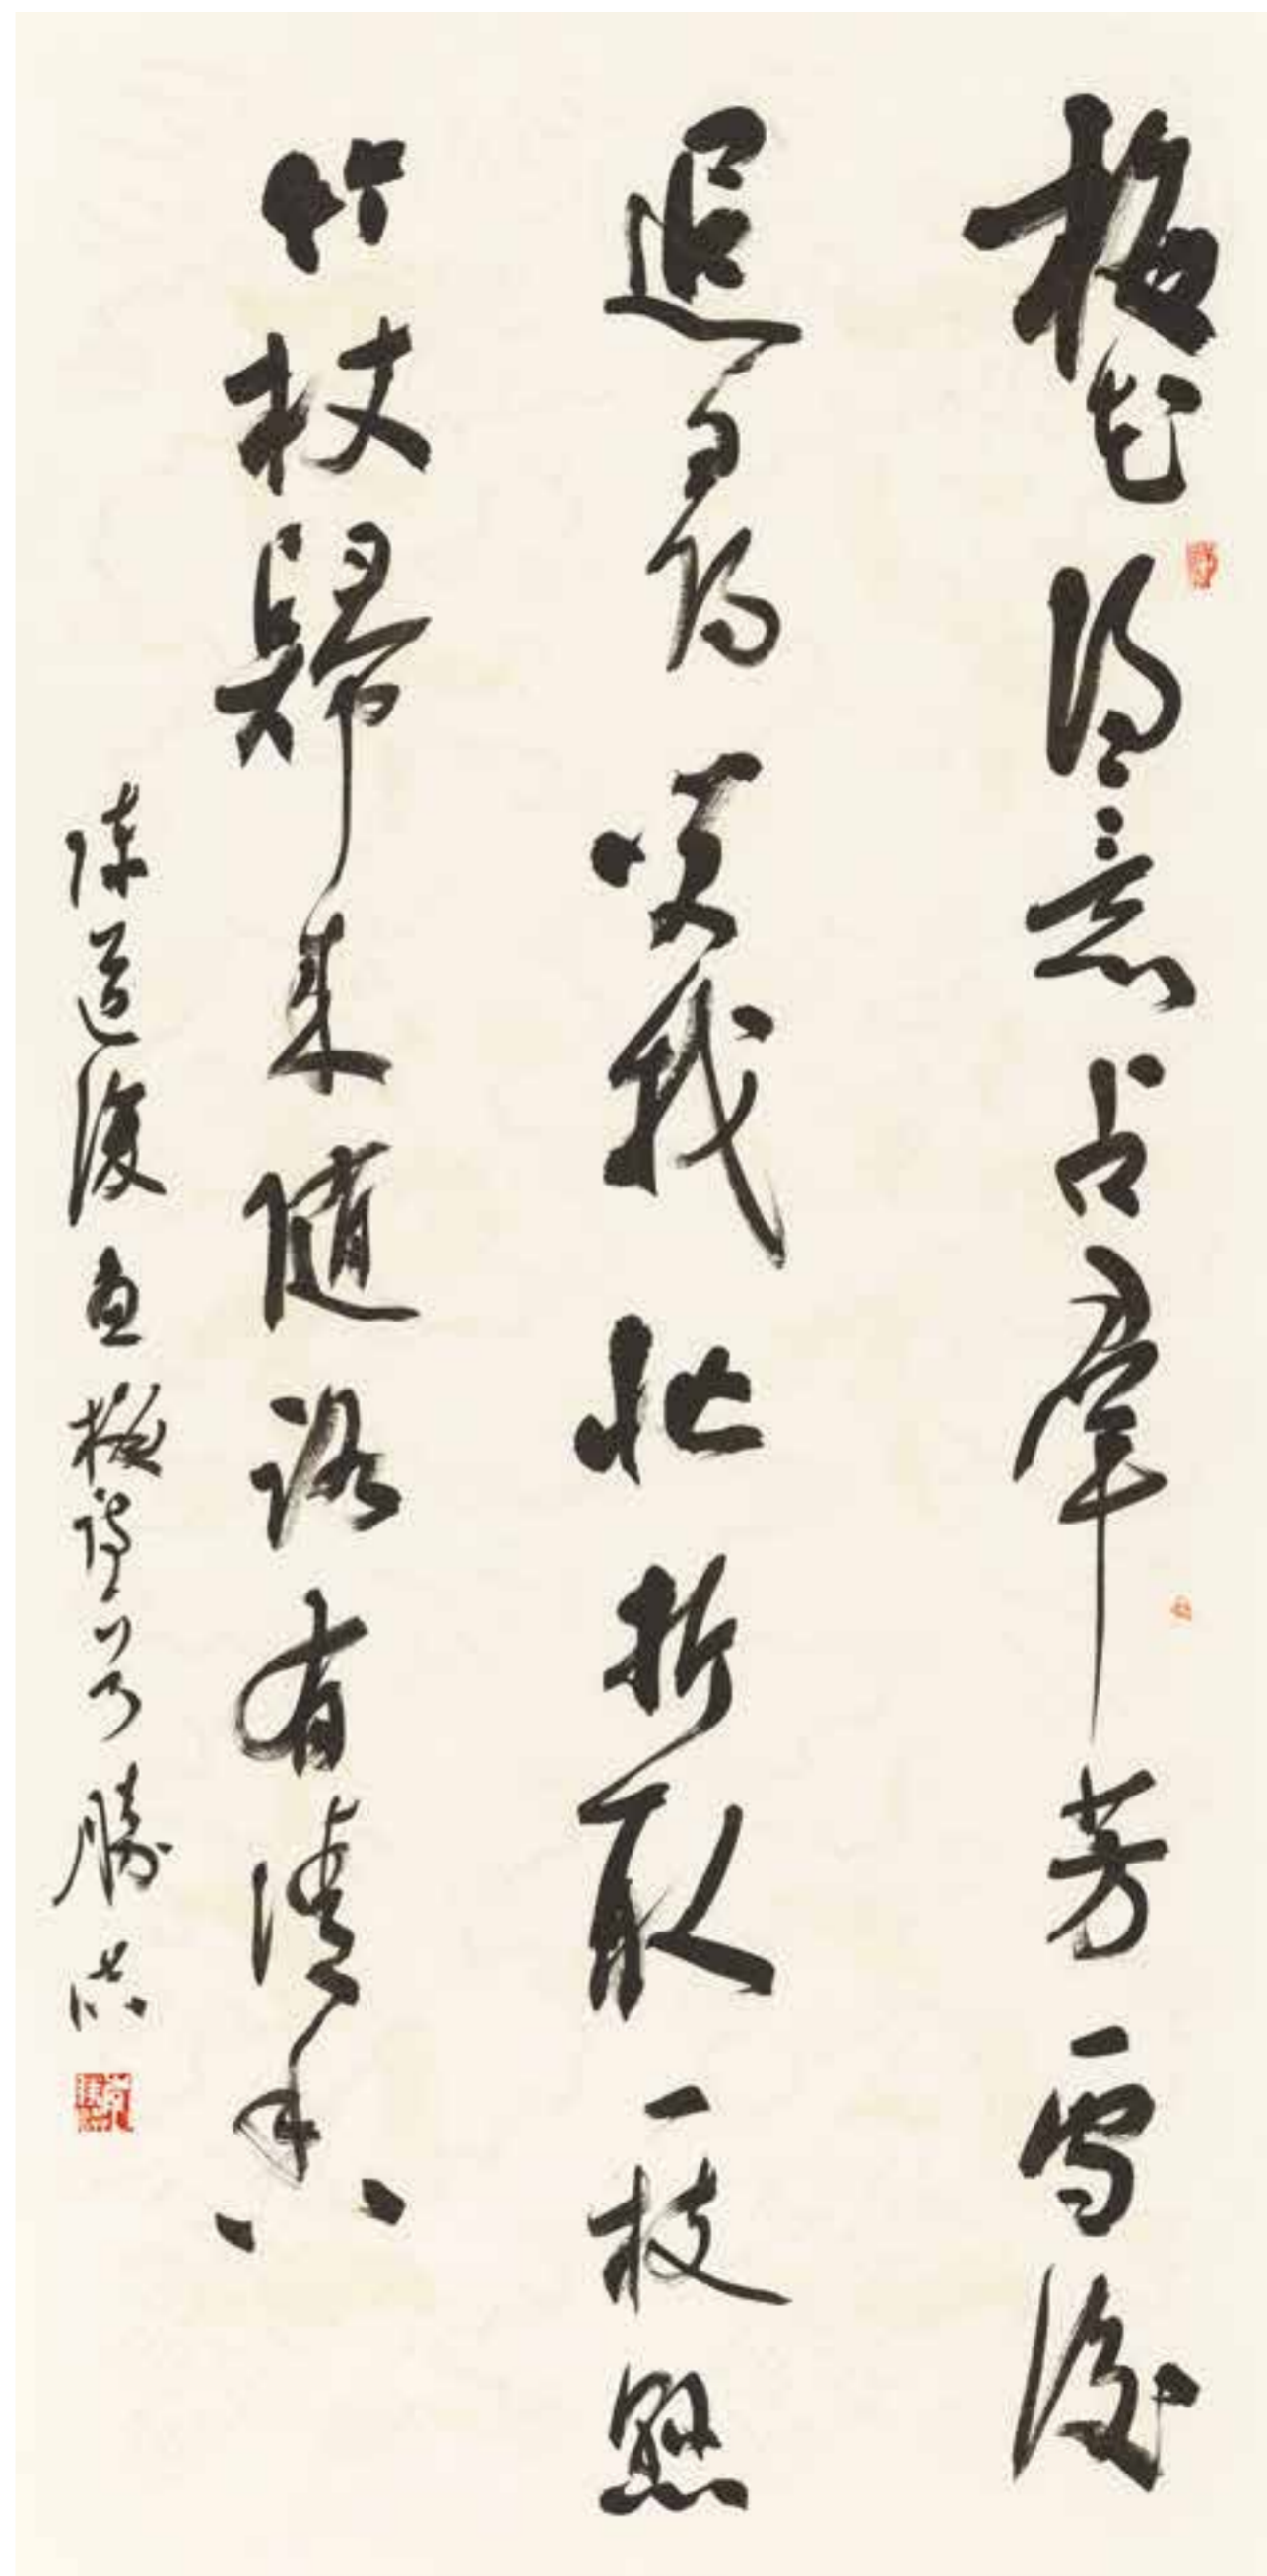 梅花得意占羣芳雪後
追尋為笑我忙折取一枝懸
竹杖歸来随路有清香
陳道復画梅詩一首勝洪